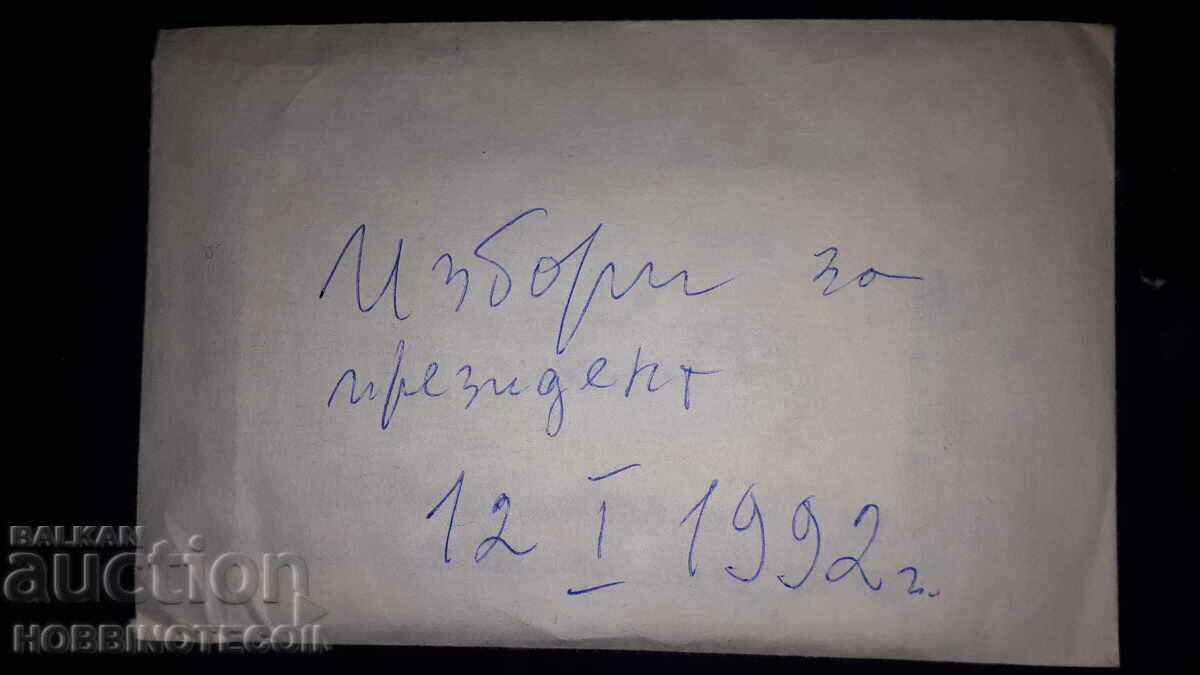 Избори за
президент
12 I 1992 г.
BALKAN
auction
HOBBINOTECOIN